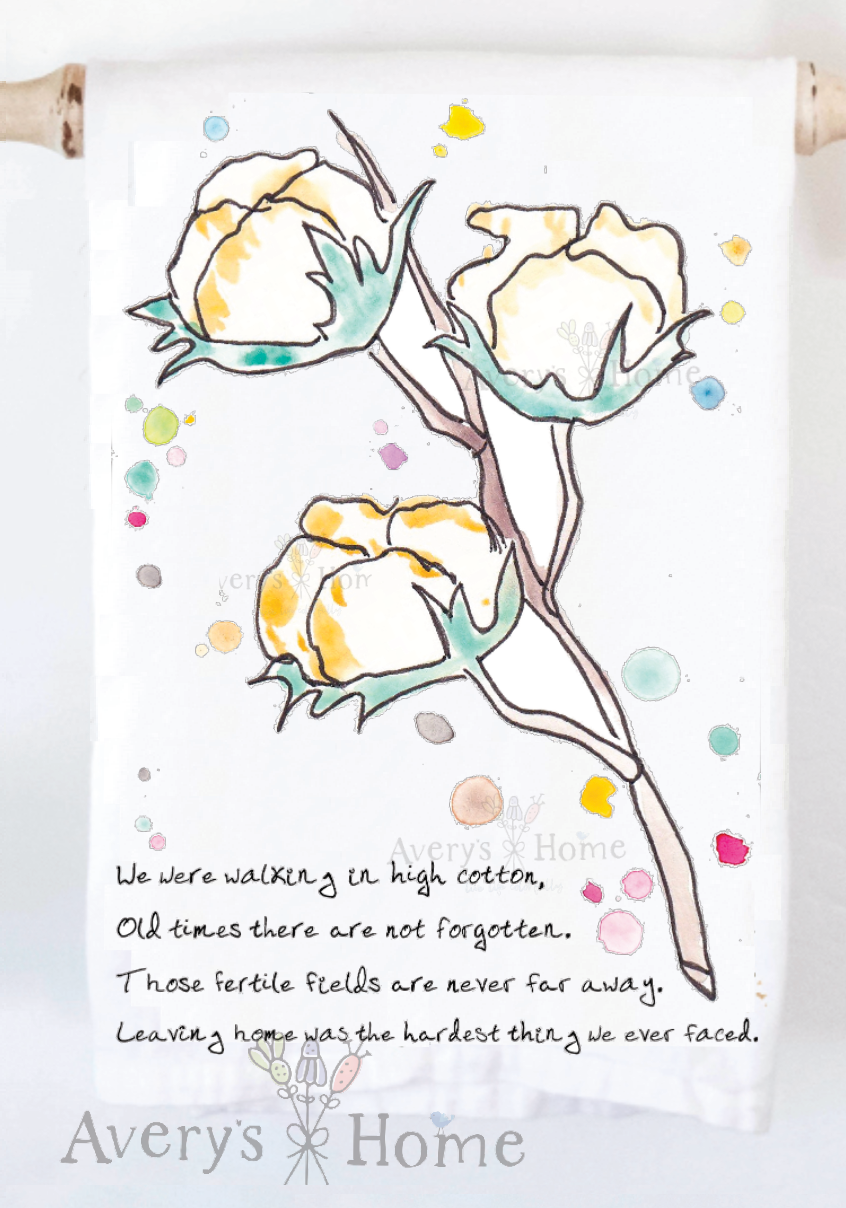 Avery's Home
very's Hom
Avery's Home
We were walking in high cotton,
Old times there are not forgotten.
Those fertile fields are never far away.
Leaving home was the hardest thing we ever faced.
Avery's Home